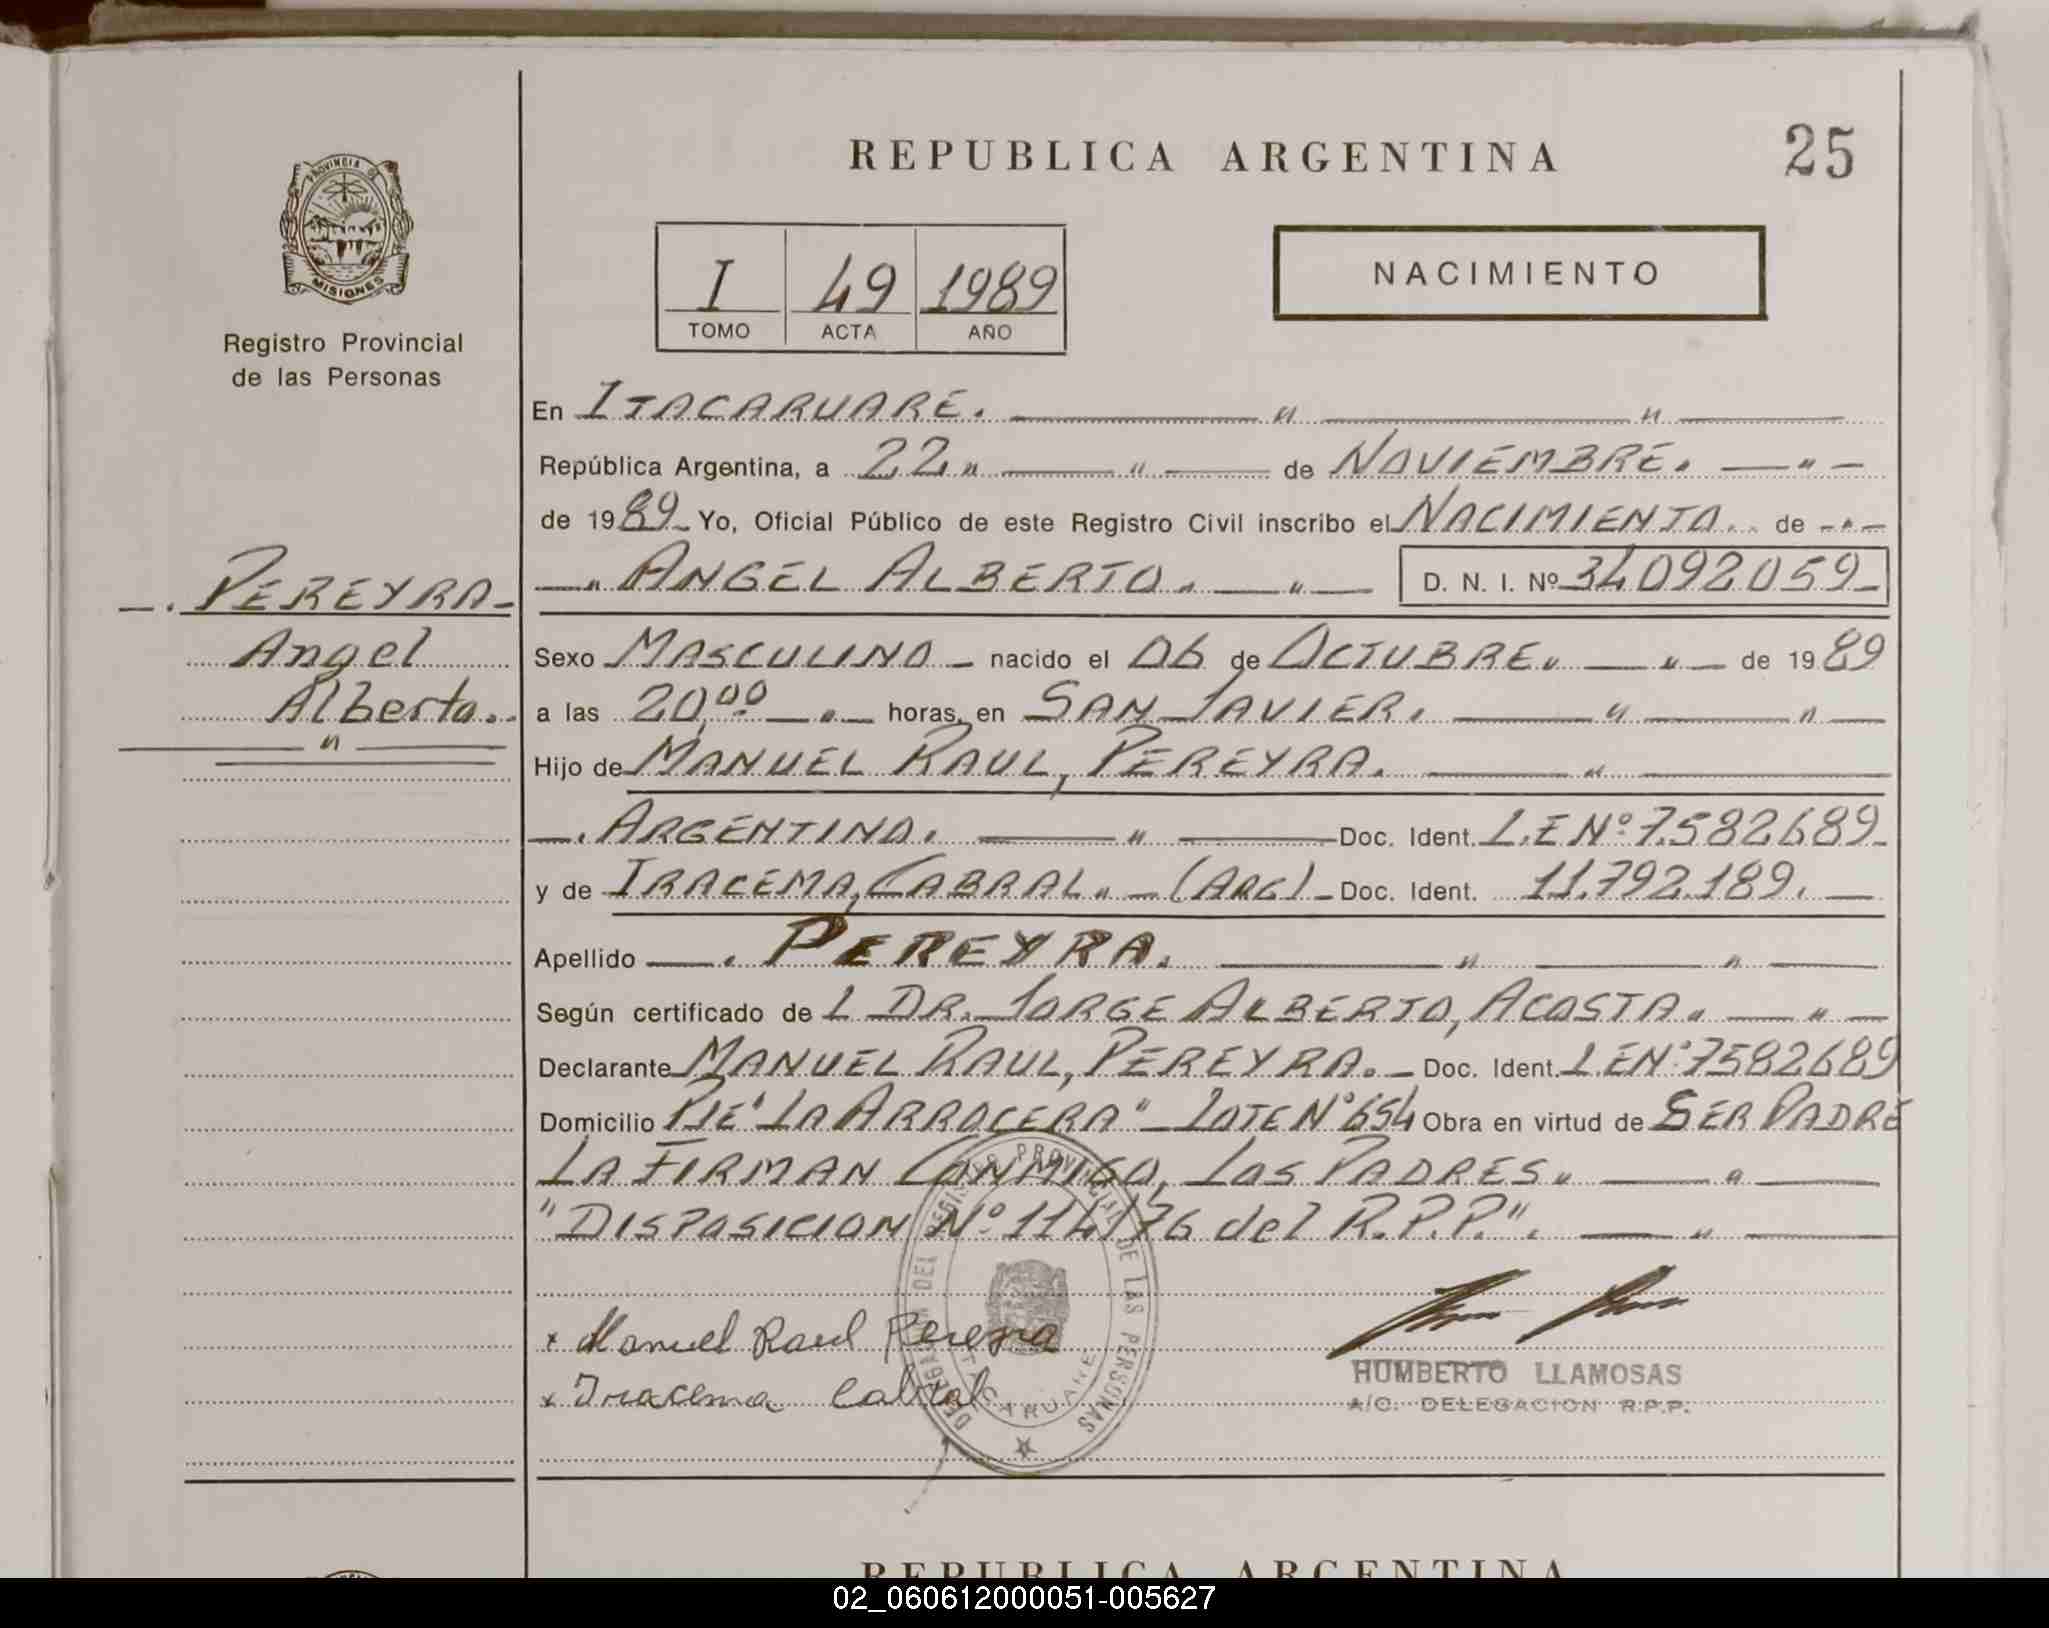 REPUBLICA ARGENTINA
25
PROVINCIA DE
MISIONES
Registro Provincial
de las Personas
I 49 1989
TOMO ACTA AÑO
NACIMIENTO
En ITACARUARE. — " — " —
República Argentina, a 22 " — " — de NOVIEMBRE. — " —
de 1989 Yo, Oficial Público de este Registro Civil inscribo el NACIMIENTO. de - " -
—. PEREYRA -
Angel
Alberto. .
— " —
— " ANGEL ALBERTO. — " — D. N. I. Nº 34092059 -
Sexo MASCULINO - nacido el 06 de OCTUBRE. — " — de 1989
a las 20,00 — . — horas, en SAN JAVIER. — " — " —
Hijo de MANUEL RAUL, PEREYRA. — " —
—. ARGENTINO. — " — Doc. Ident. L.E Nº 7.582689 -
y de IRACEMA, CABRAL. — (ARG) - Doc. Ident. 11.792.189. —
Apellido —. PEREYRA. — " — " —
Según certificado de L DR. JORGE ALBERTO, ACOSTA. — " —
Declarante MANUEL RAUL, PEREYRA. - Doc. Ident. L.E Nº 7582689
Domicilio PJE "LA ARROCERA" - LOTE Nº 654 Obra en virtud de SER PADRE
LA FIRMAN CONMIGO, LOS PADRES. — " —
"DISPOSICION Nº 114/76 del R.P.P.". — " —
DELEGACION DEL REGISTRO PROVINCIAL DE LAS PERSONAS
ITACARUARE
x Manuel Raul Pereyra
x Iracema Cabral
HUMBERTO LLAMOSAS
A/C. DELEGACION R.P.P.
REPUBLICA ARGENTINA
02_060612000051-005627